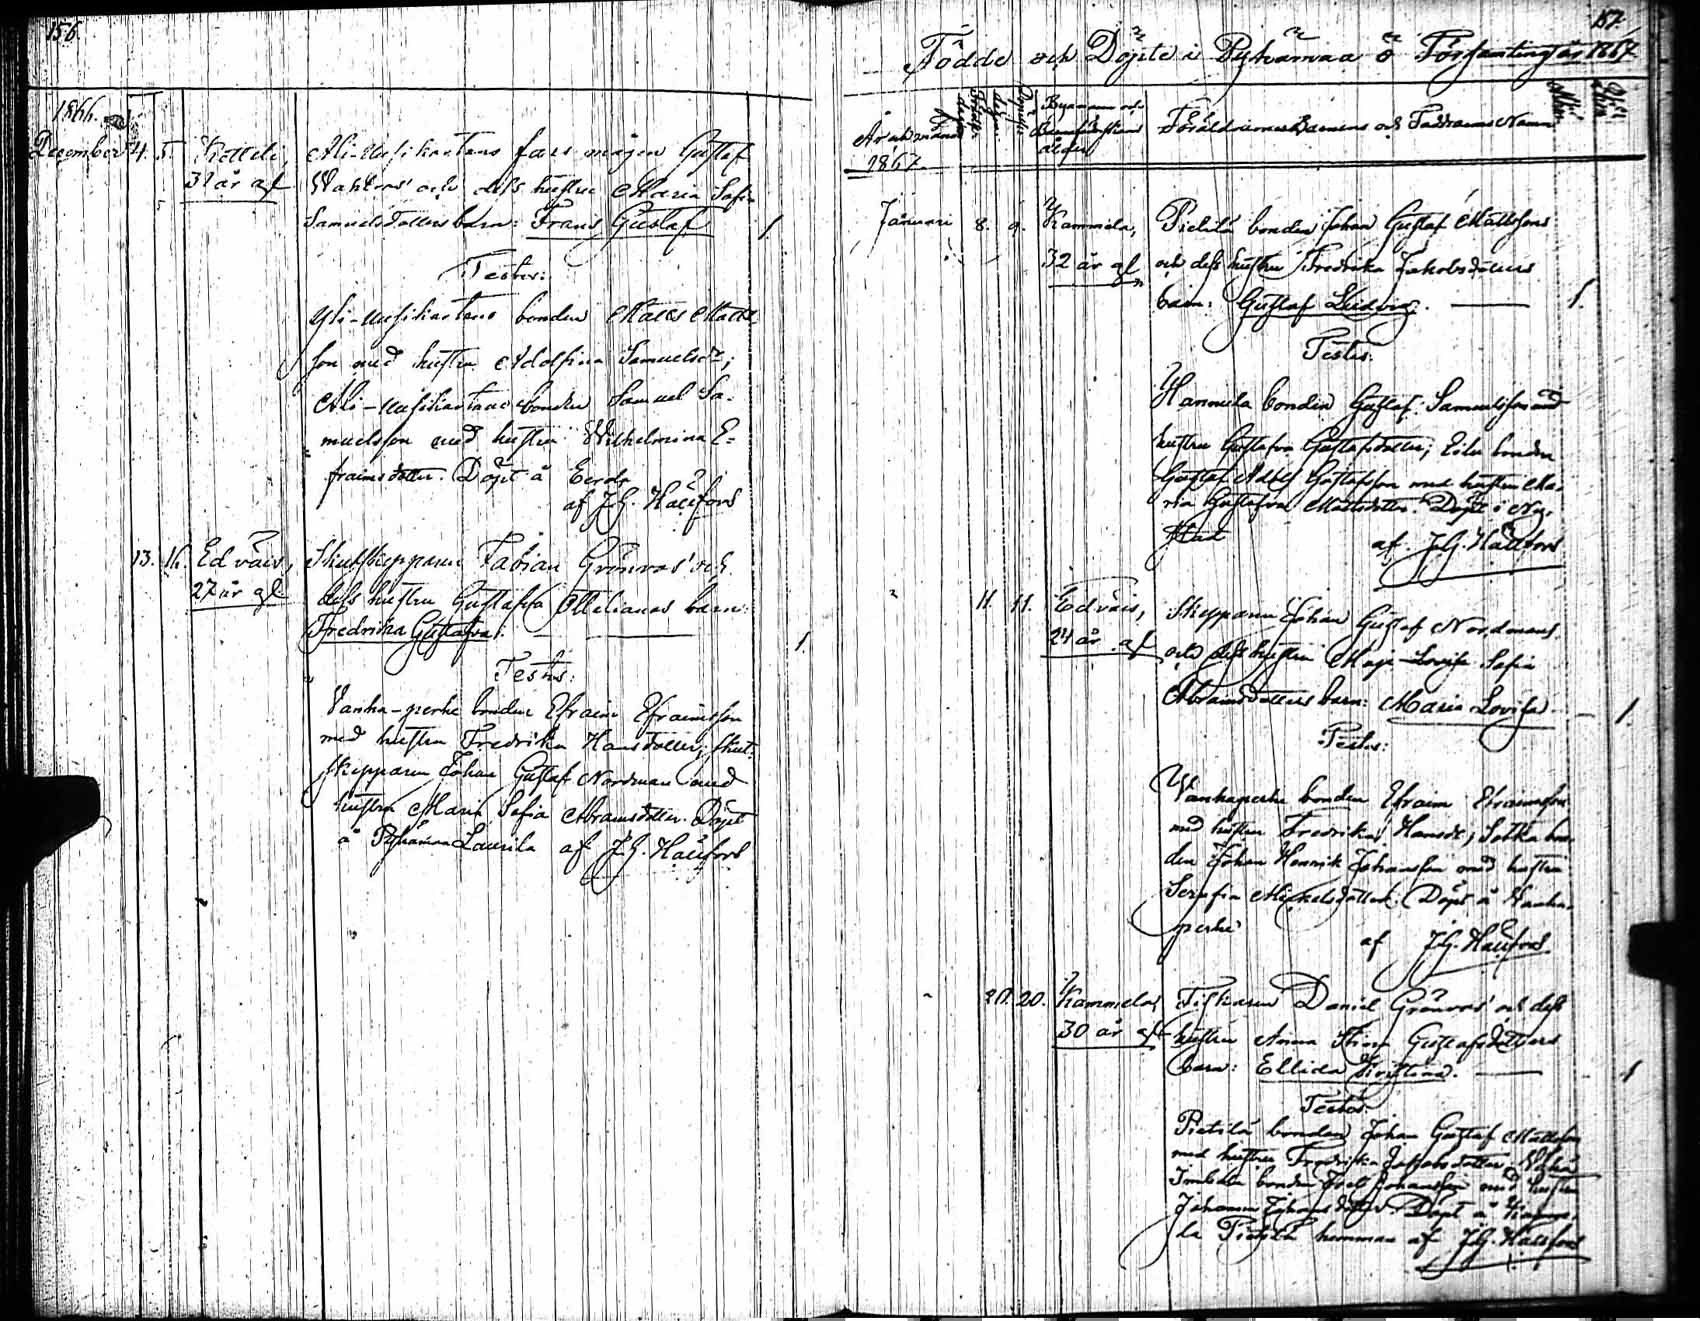 156.
1866.
December 4. 5. Ketteli,
31 år gl
Ali-Uusikartano fars mågen Gustaf
Wahlros' och dess hustru Maria Sofia
Samuelsdotters barn: Frans Gustaf 1.
Testes:
Yli-Uusikartano bonden Matts Matts-
son med hustru Adolfina Samuelsdr;
Ali-Uusikartano bonden Samuel Sa-
muelsson med hustru Wilhelmina E-
fraimsdotter. Döpt å
af J.G. Hallfors
13. 16. Edväis,
27 år gl
Skutskepparen Fabian Grönroos' och
dess hustru Gustafva Ottilianas barn:
Fredrika Gustafva. 1.
Testes:
Vanha-perhe bonden Efraim Efraimsson
med hustru Fredrika Hansdotter; skut-
skepparen Johan Gustaf Nordman med
hustru Maria Sofia Abramsdotter. Döpt
å Pyhämaa Laurila af J.G. Hallfors
157.
Födde och Döpte i Pyhämaa Församling år 1867
År och månad
1867.
Byanamn och
Barnaföderskans
ålder
Föräldrarnes, Barnens och Faddrarnes Namn
Januari 8. 9. Kammela,
32 år gl
Pietilä bonden Johan Gustaf Mattssons
och dess hustru Fredrika Jakobsdotters
barn: Gustaf Ludvig. 1.
Testes:
Hannula bonden Gustaf Samuelsson med
hustru Gustafva Gustafsdotter; Eilu bonden
Gustaf Adolf Gustafsson med hustru Ma-
ria Gustafva Mattsdotter. Döpt i Ny-
stad
af J.G. Hallfors
11. 11. Edväis,
24 år gl
Skepparen Johan Gustaf Nordmans
och dess hustru Maja Lovisa Sofia
Abramsdotters barn: Maria Lovisa 1.
Testes:
Vanhaperhe bonden Efraim Efraimsson
med hustru Fredrika Hansdr; Sotka bon-
den Johan Henrik Johansson med hustru
Serafia Mickelsdotter. Döpt å Vanha-
perhe
af J.G. Hallfors
20. 20. Kammela,
30 år gl
Fiskaren Daniel Grönroos' och dess
hustru Anna Stina Gustafsdotters
barn: Ellida Kristina. 1
Testes
Pietilä bonden Johan Gustaf Mattsson
med hustru Fredrika Jakobsdotter,
bonden Johansson med hustru
Johanna Johansdotter. Döpt å Kamme-
la Pietilä hemman af J.G. Hallfors